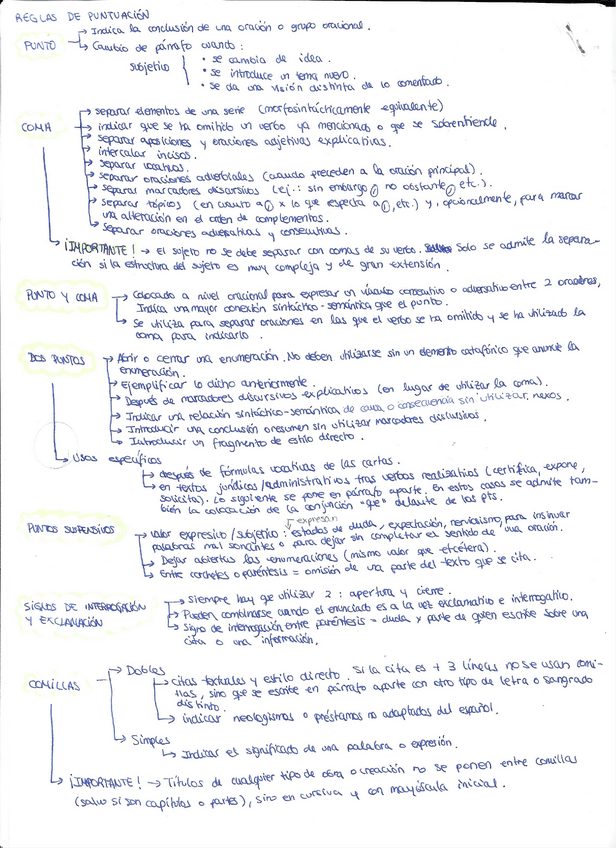 REGLAS DE PUNTUACIÓN
PUNTO → Indica la conclusión de una oración o grupo oracional.
→ Cambio de párrafo cuando:
subjetivo • se cambia de idea.
• se introduce un tema nuevo.
• se da una visión distinta de lo comentado.
COMA → separar elementos de una serie (morfosintácticamente equivalente)
→ indicar que se ha omitido un verbo ya mencionado o que se sobrentiende.
→ separar aposiciones y oraciones adjetivas explicativas.
→ intercalar incisos.
→ separar vocativos.
→ separar oraciones adverbiales (cuando preceden a la oración principal).
→ separar marcadores discursivos (ej.: sin embargo, no obstante, etc.).
→ separar tópicos (en cuanto a, x lo que respecta a, etc.) y, opcionalmente, para marcar
una alteración en el orden de complementos.
→ separar oraciones adversativas y consecutivas.
→ ¡IMPORTANTE! → El sujeto no se debe separar con comas de su verbo. Solo se admite la separa-
ción si la estructura del sujeto es muy compleja y de gran extensión.
PUNTO Y COMA → Colocado a nivel oracional para expresar un vínculo consecutivo o adversativo entre 2 oraciones,
Indica una mayor conexión sintáctico-semántica que el punto.
→ Se utiliza para separar oraciones en las que el verbo se ha omitido y se ha utilizado la
coma para indicarlo.
DOS PUNTOS → Abrir o cerrar una enumeración. No deben utilizarse sin un elemento catafórico que anuncie la
enumeración.
→ Ejemplificar lo dicho anteriormente.
→ Después de marcadores discursivos explicativos (en lugar de utilizar la coma).
→ Indicar una relación sintáctico-semántica de causa o consecuencia sin utilizar nexos.
→ Introducir una conclusión o resumen sin utilizar marcadores discursivos.
→ Introducir un fragmento de estilo directo.
→ Usos específicos
→ después de fórmulas vocativas de las cartas.
→ en textos jurídicos/administrativos tras verbos realizativos (certifica, expone,
solicita). Lo siguiente se pone en párrafo aparte. En estos casos se admite tam-
bién la colocación de la conjunción "que" delante de los pts.
expresan
PUNTOS SUSPENSIVOS → valor expresivo/subjetivo: estados de duda, expectación, nerviosismo, para insinuar
palabras mal sonantes o para dejar sin completar el sentido de una oración.
→ Dejar abiertas las enumeraciones (mismo valor que etcétera).
→ Entre corchetes o paréntesis = omisión de una parte del texto que se cita.
SIGNOS DE INTERROGACIÓN → Siempre hay que utilizar 2: apertura y cierre.
Y EXCLAMACIÓN → Pueden combinarse cuando el enunciado es a la vez exclamativo e interrogativo.
→ Signo de interrogación entre paréntesis = duda x parte de quien escribe sobre una
cita o una información.
COMILLAS → Dobles
→ citas textuales y estilo directo. Si la cita es + 3 líneas no se usan comi-
llas, sino que se escribe en párrafo aparte con otro tipo de letra o sangrado
distinto.
→ indicar neologismos o préstamos no adaptados del español.
→ Simples
→ Indicar el significado de una palabra o expresión.
→ ¡IMPORTANTE! → Títulos de cualquier tipo de obra o creación no se ponen entre comillas
(salvo si son capítulos o partes), sino en cursiva y con mayúscula inicial.